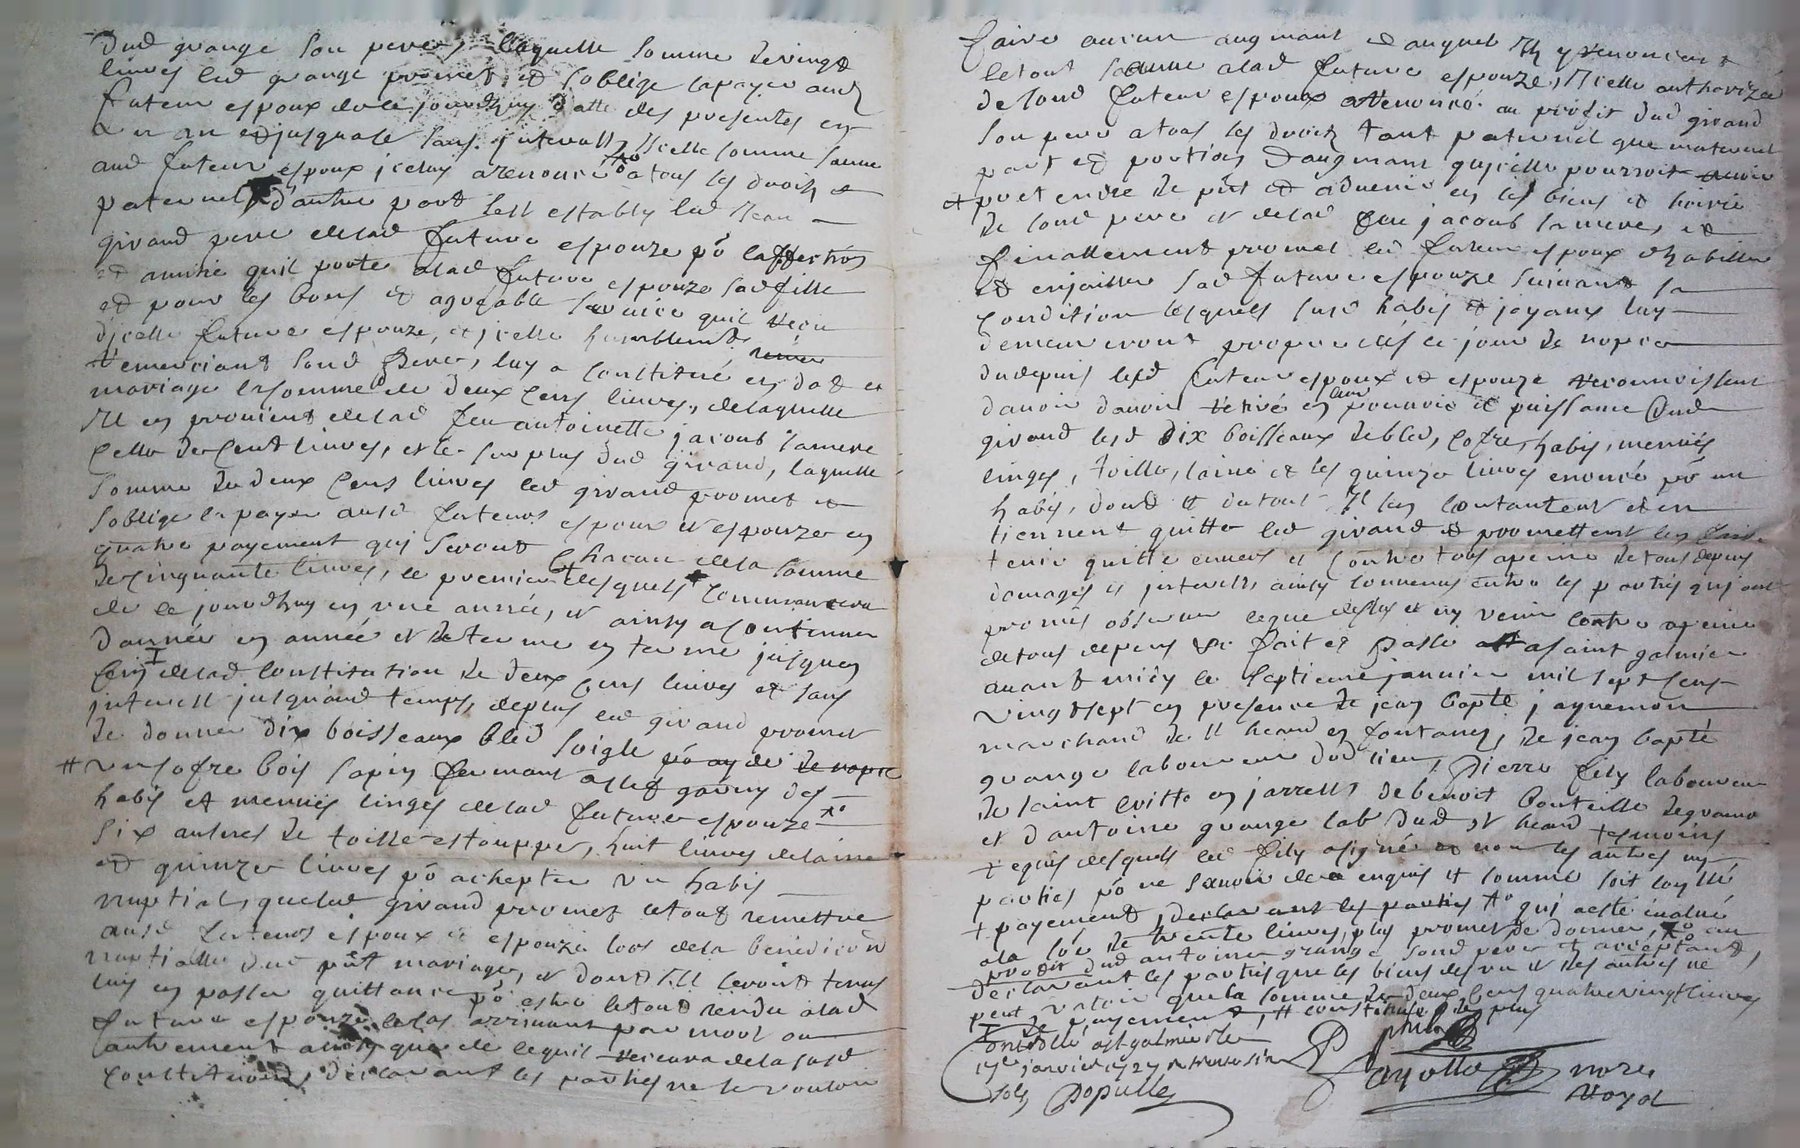 dud grange son pere, laquelle somme de vingt
livres led grange promet et soblige la payer aud
futeur espoux de ce jourdhuy datte des presentes en
un an et jusqua ce sans interrests, Icelle somme
aud futeur espoux iceluy a renoncé a tous les droits
paternel, d'autre part sest estably led Jean
giraud pere delad future espouze po laffection
et amitié quil porte alad future espouze sad fille
et pour les bons et agreable service quil
dicelle future espouze, et icelle humblement
remerciant sond pere, luy a constitué en dot et
mariage la somme de deux cens livres, delaquelle
Il en provient delad feu antoinette jacoub sa mere
celle de cent livres, et le surplus dud giraud, laquelle
somme de deux cens livres led giraud promet et
soblige la payer ausd futeurs espoux et espouze en
quatre payement qui seront chacun de la somme
de cinquante livres, le premier desquels commancera
de ce jourdhuy en une année, et ainsy a continuer
dannée en année et de terme en terme jusques
fin delad constitution de deux cens livres et sans
interest jusquaud temps, deplus led giraud promet
de donner dix boisseaux bled soigle
# un cofre bois sapin fermant a clef garny des
habis et menues linges delad future espouze
six autres de toille estouppe, huit livres de laine
et quinze livres po achepter un habis
nuptial, que led giraud promet le tout remettre
ausd futeurs espoux et espouze lors de la benediction
nuptialle dud pnt mariage, et dont Ill seront tenus
luy en passer quittance po estre le tout rendu alad
future espouze le cas arrivant par mort ou
autrement ainsy que de ce quil recevra de la susd
constitution, declarant les parties ne se vouloir
faire aucun augmant auquel Ils y renoncient
le tout alad future espouze, Icelle authorizée
de sond futeur espoux a renoncé au profit dud giraud
son pere a tous les droits tant paternel que maternel
part et portion daugmant quicelle pourroit
pretendre de pnt et advenir en les biens et hoirie
de sond pere et delad feue jacoub sa mere, et
finallement promet led futeur espoux dhabiller
et enjoailler sad future espouze suivant sa
condition lesquels susd habis et joyaux luy
demeureront propre des ce jour de nopce
dudepuis lesd futeur espoux et espouze reconnoissent
davoir davoir retiré en leur pouvoir et puissance dud
giraud lesd dix boisseaux de bled, cofre, habis, menues
linges, toille, laine et les quinze livres enoncé po un
habis, dont et du tout Il sen contantent et en
tiennent quitte led giraud et promettent len faire
tenir quitte envers et contre tous apeine de tous depens
domages et interests, ainsy convenus entre les parties qui ont
promis observer ce que dessus et ny venir contre apeine
de tous depens fait et passé a saint galmier
avant midy le septieme janvier mil sept cens
vingt sept en presence de jean bapte jaynemon
marchand de st heand en fontanes, de jean bapte
grange laboureur dud lieu, Pierre fily laboureur
de saint en jarrests de benoit bouteille de grand
et dantoine grange lab dud st heand tesmoins
requis desquels led fily a signé et non les autres ny
parties po ne sçavoir de ce enquis et sommé soit
+ payement, declarant les parties qui a esté évalué
a la so de trente livres, plus promet de donner, au
profit dud antoine grange sond pere et acceptant,
declarant les parties que les biens de lun et des autres ne
peut valoir que la somme de deux cens quatrevingt livres
de payement, # constitué de plus
Controllé a st galmier le
17e janvier 1727 R
sols Populle
Payolle nore
Royal